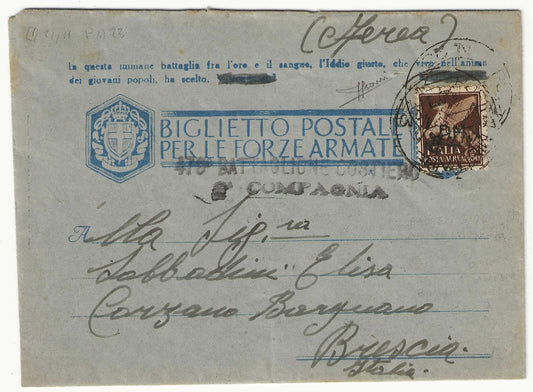 (Aerea)
In questa immane battaglia fra l'oro e il sangue, l'Iddio giusto, che vive nell'anima
dei giovani popoli, ha scelto.
BIGLIETTO POSTALE
PER LE FORZE ARMATE
P.M.
ITALIA
POSTA AEREA
BATTAGLIONE COSTIERO
2ª COMPAGNIA
Alla Sig.ra
Sabbadini Elisa
Corzano Bargnano
Brescia.
Italia.